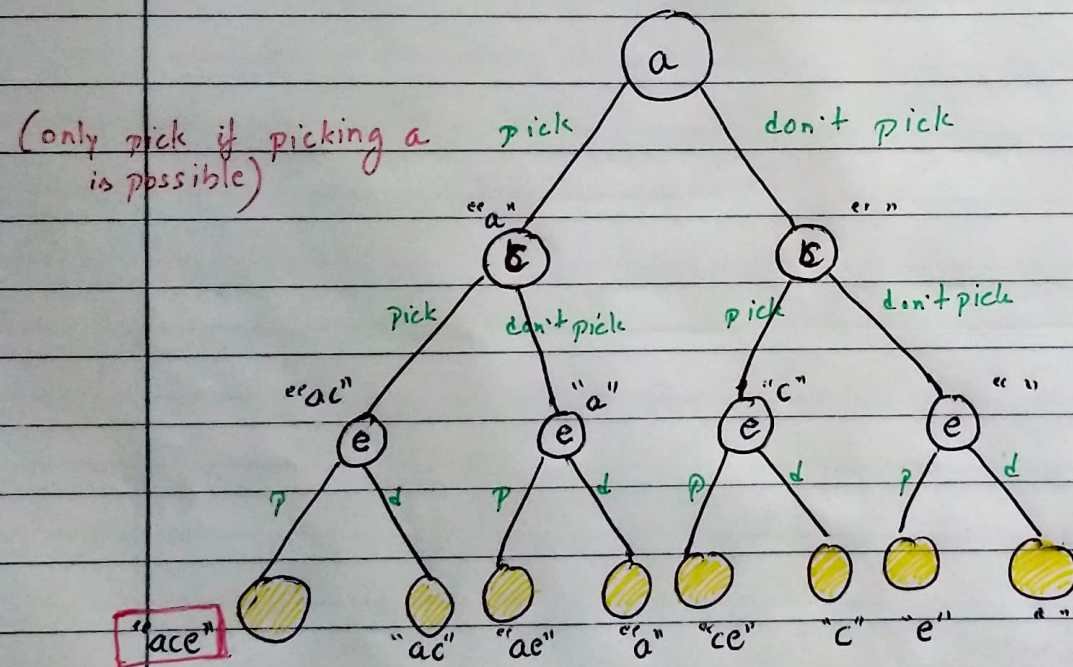 a
(only pick if picking a
is possible)
pick
don't pick
"a"
" "
c
c
pick
don't pick
pick
don't pick
"ac"
"a"
"c"
" "
e
e
e
e
p
d
p
d
p
d
p
d
"ace"
"ac"
"ae"
"a"
"ce"
"c"
"e"
" "